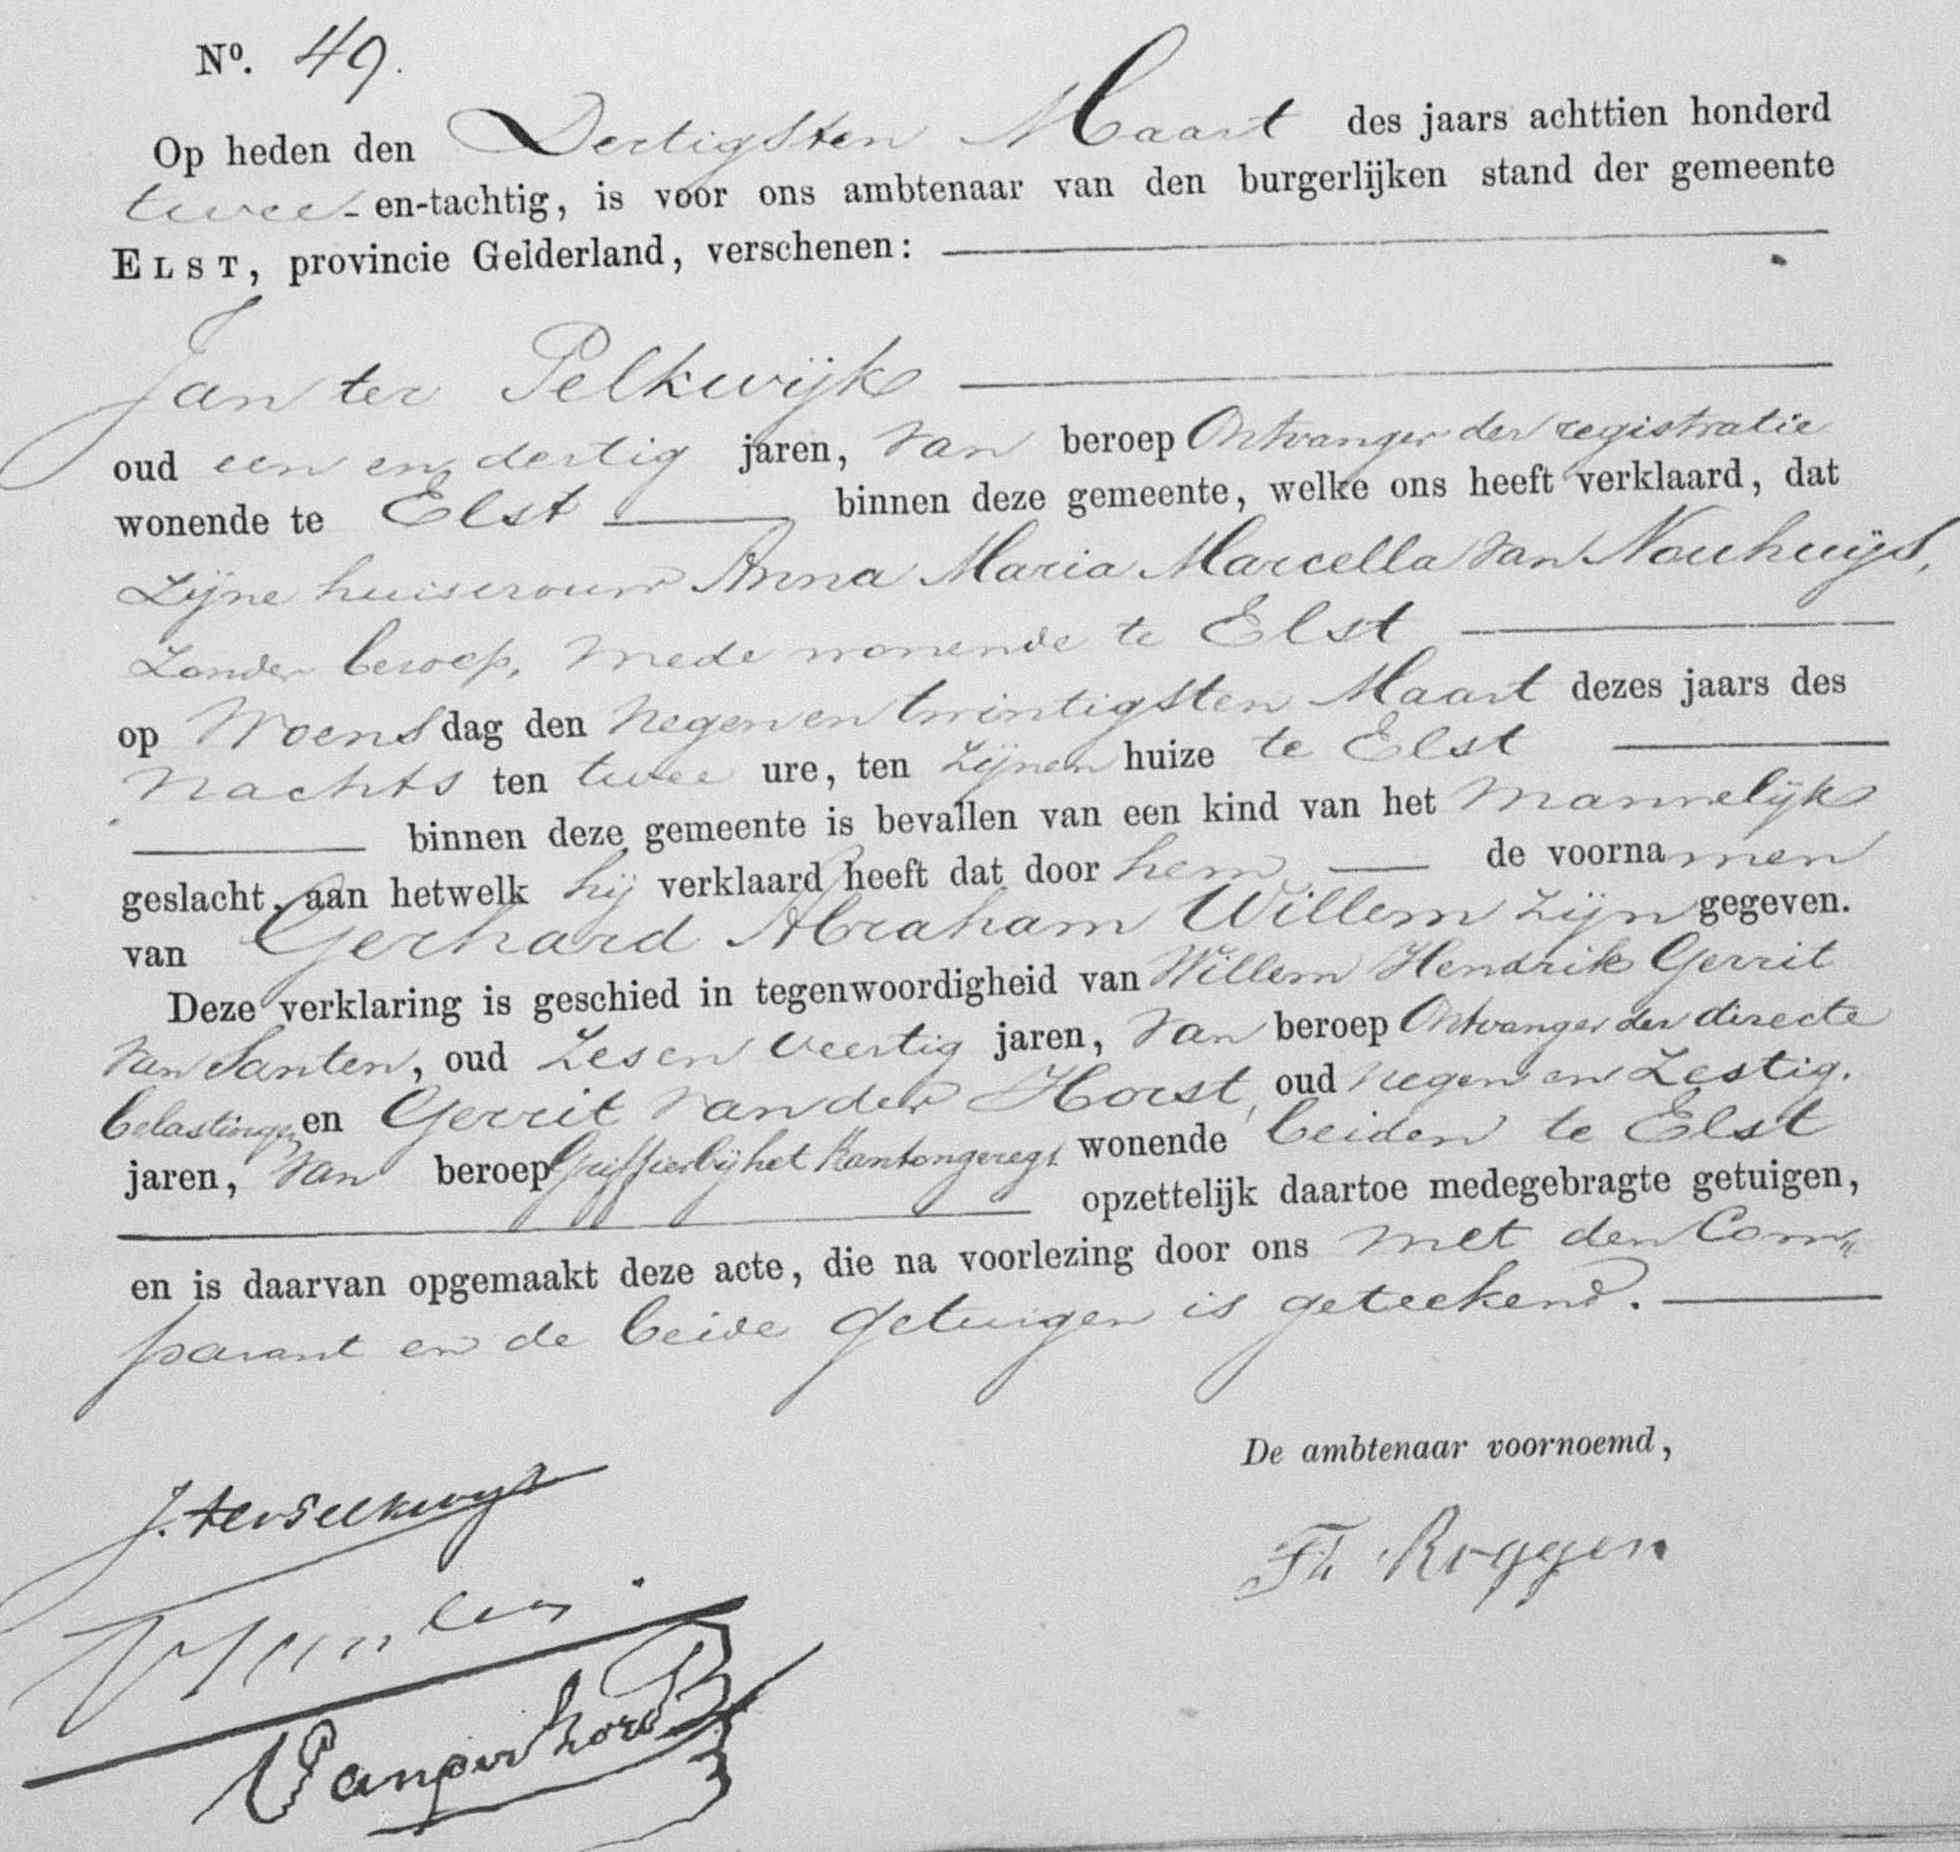 Nº. 49.
Op heden den Dertigsten Maart des jaars achttien honderd
twee-en-tachtig, is voor ons ambtenaar van den burgerlijken stand der gemeente
ELST, provincie Gelderland, verschenen:
Jan ter Pelkwijk
oud een en dertig jaren, van beroep Ontvanger der registratie
wonende te Elst binnen deze gemeente, welke ons heeft verklaard, dat
zijne huisvrouw Anna Maria Marcella van Nouhuijs,
zonder beroep, mede wonende te Elst
op Woensdag den negen en twintigsten Maart dezes jaars des
nachts ten twee ure, ten zijnen huize te Elst
binnen deze gemeente is bevallen van een kind van het mannelijk
geslacht, aan hetwelk hij verklaard heeft dat door hem de voornamen
van Gerhard Abraham Willem zijn gegeven.
Deze verklaring is geschied in tegenwoordigheid van Willem Hendrik Gerrit
van Santen, oud zes en veertig jaren, van beroep Ontvanger der directe
belastingen en Gerrit van der Horst, oud negen en zestig.
jaren, van beroep Griffier bij het Kantongeregt wonende beiden te Elst
opzettelijk daartoe medegebragte getuigen,
en is daarvan opgemaakt deze acte, die na voorlezing door ons met den Com„
parant en de beide getuigen is geteekend.
De ambtenaar voornoemd,
J. ter Pelkwijk
Th Roggen
Vanderhorst